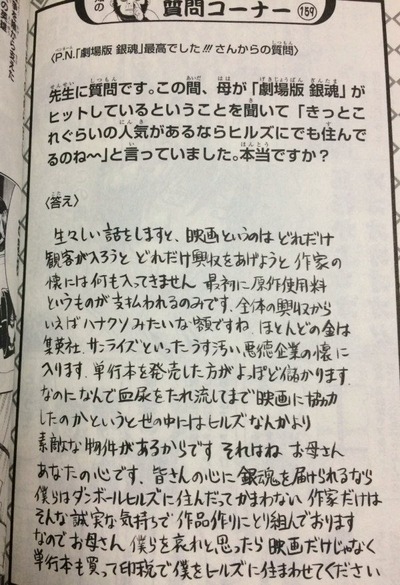 質問コーナー 159
〈P.N.「劇場版 銀魂」最高でした!!! さんからの質問〉
先生に質問です。この間、母が「劇場版 銀魂」が
ヒットしているということを聞いて「きっとこ
れぐらいの人気があるならヒルズにでも住んで
るのね〜」と言っていました。本当ですか?
〈答え〉
生々しい話をしますと、映画というのは どれだけ
観客が入ろうと どれだけ興収をあげようと 作家の
懐には何も入ってきません 最初に原作使用料
というものが支払われるのみです。全体の興収から
いえばハナクソみたいな額ですね。ほとんどの金は
集英社、サンライズといったうす汚い悪徳企業の懐に
入ります。単行本を発売した方がよっぽど儲かります。
なのになんで血尿をたれ流してまで映画に協力
したのかというと世の中にはヒルズなんかより
素敵な物件があるからです それはね お母さん
あなたの心です。皆さんの心に 銀魂を届けられるなら
僕らはダンボールヒルズに住んだってかまわない 作家だけは
そんな誠実な気持ちで 作品作りにとり組んでおります
なのでお母さん 僕らを哀れと思ったら 映画だけじゃなく
単行本も買って印税で僕をヒルズに住まわせてください